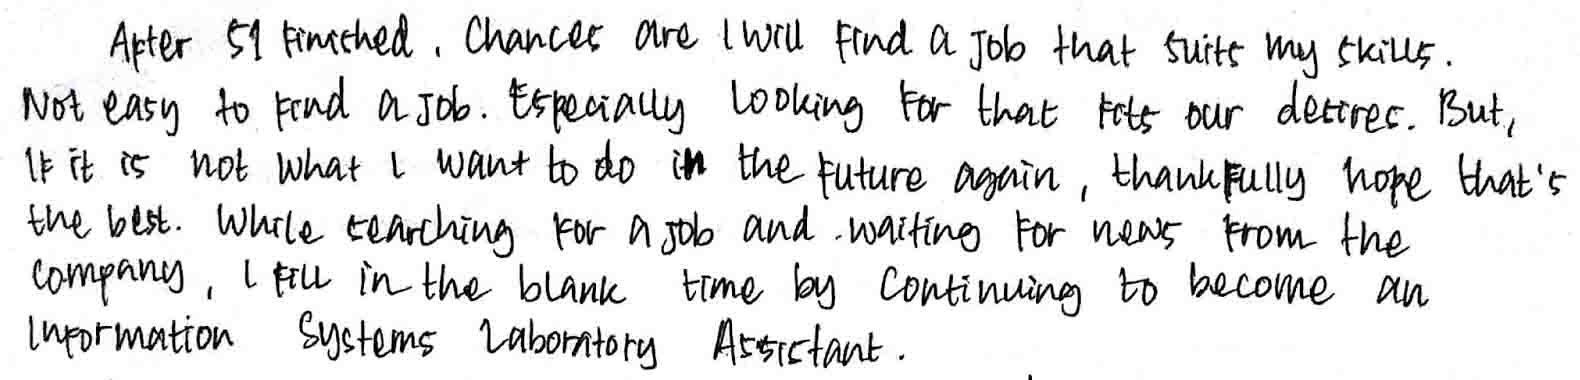 After S1 finished, Chances are I will find a job that suits my skills.
Not easy to find a job. Especially looking for that fits our desires. But,
If it is not what I want to do in the future again, thankfully hope that's
the best. While searching for a job and waiting for news from the
company, I fill in the blank time by continuing to become an
Information Systems Laboratory Assistant.